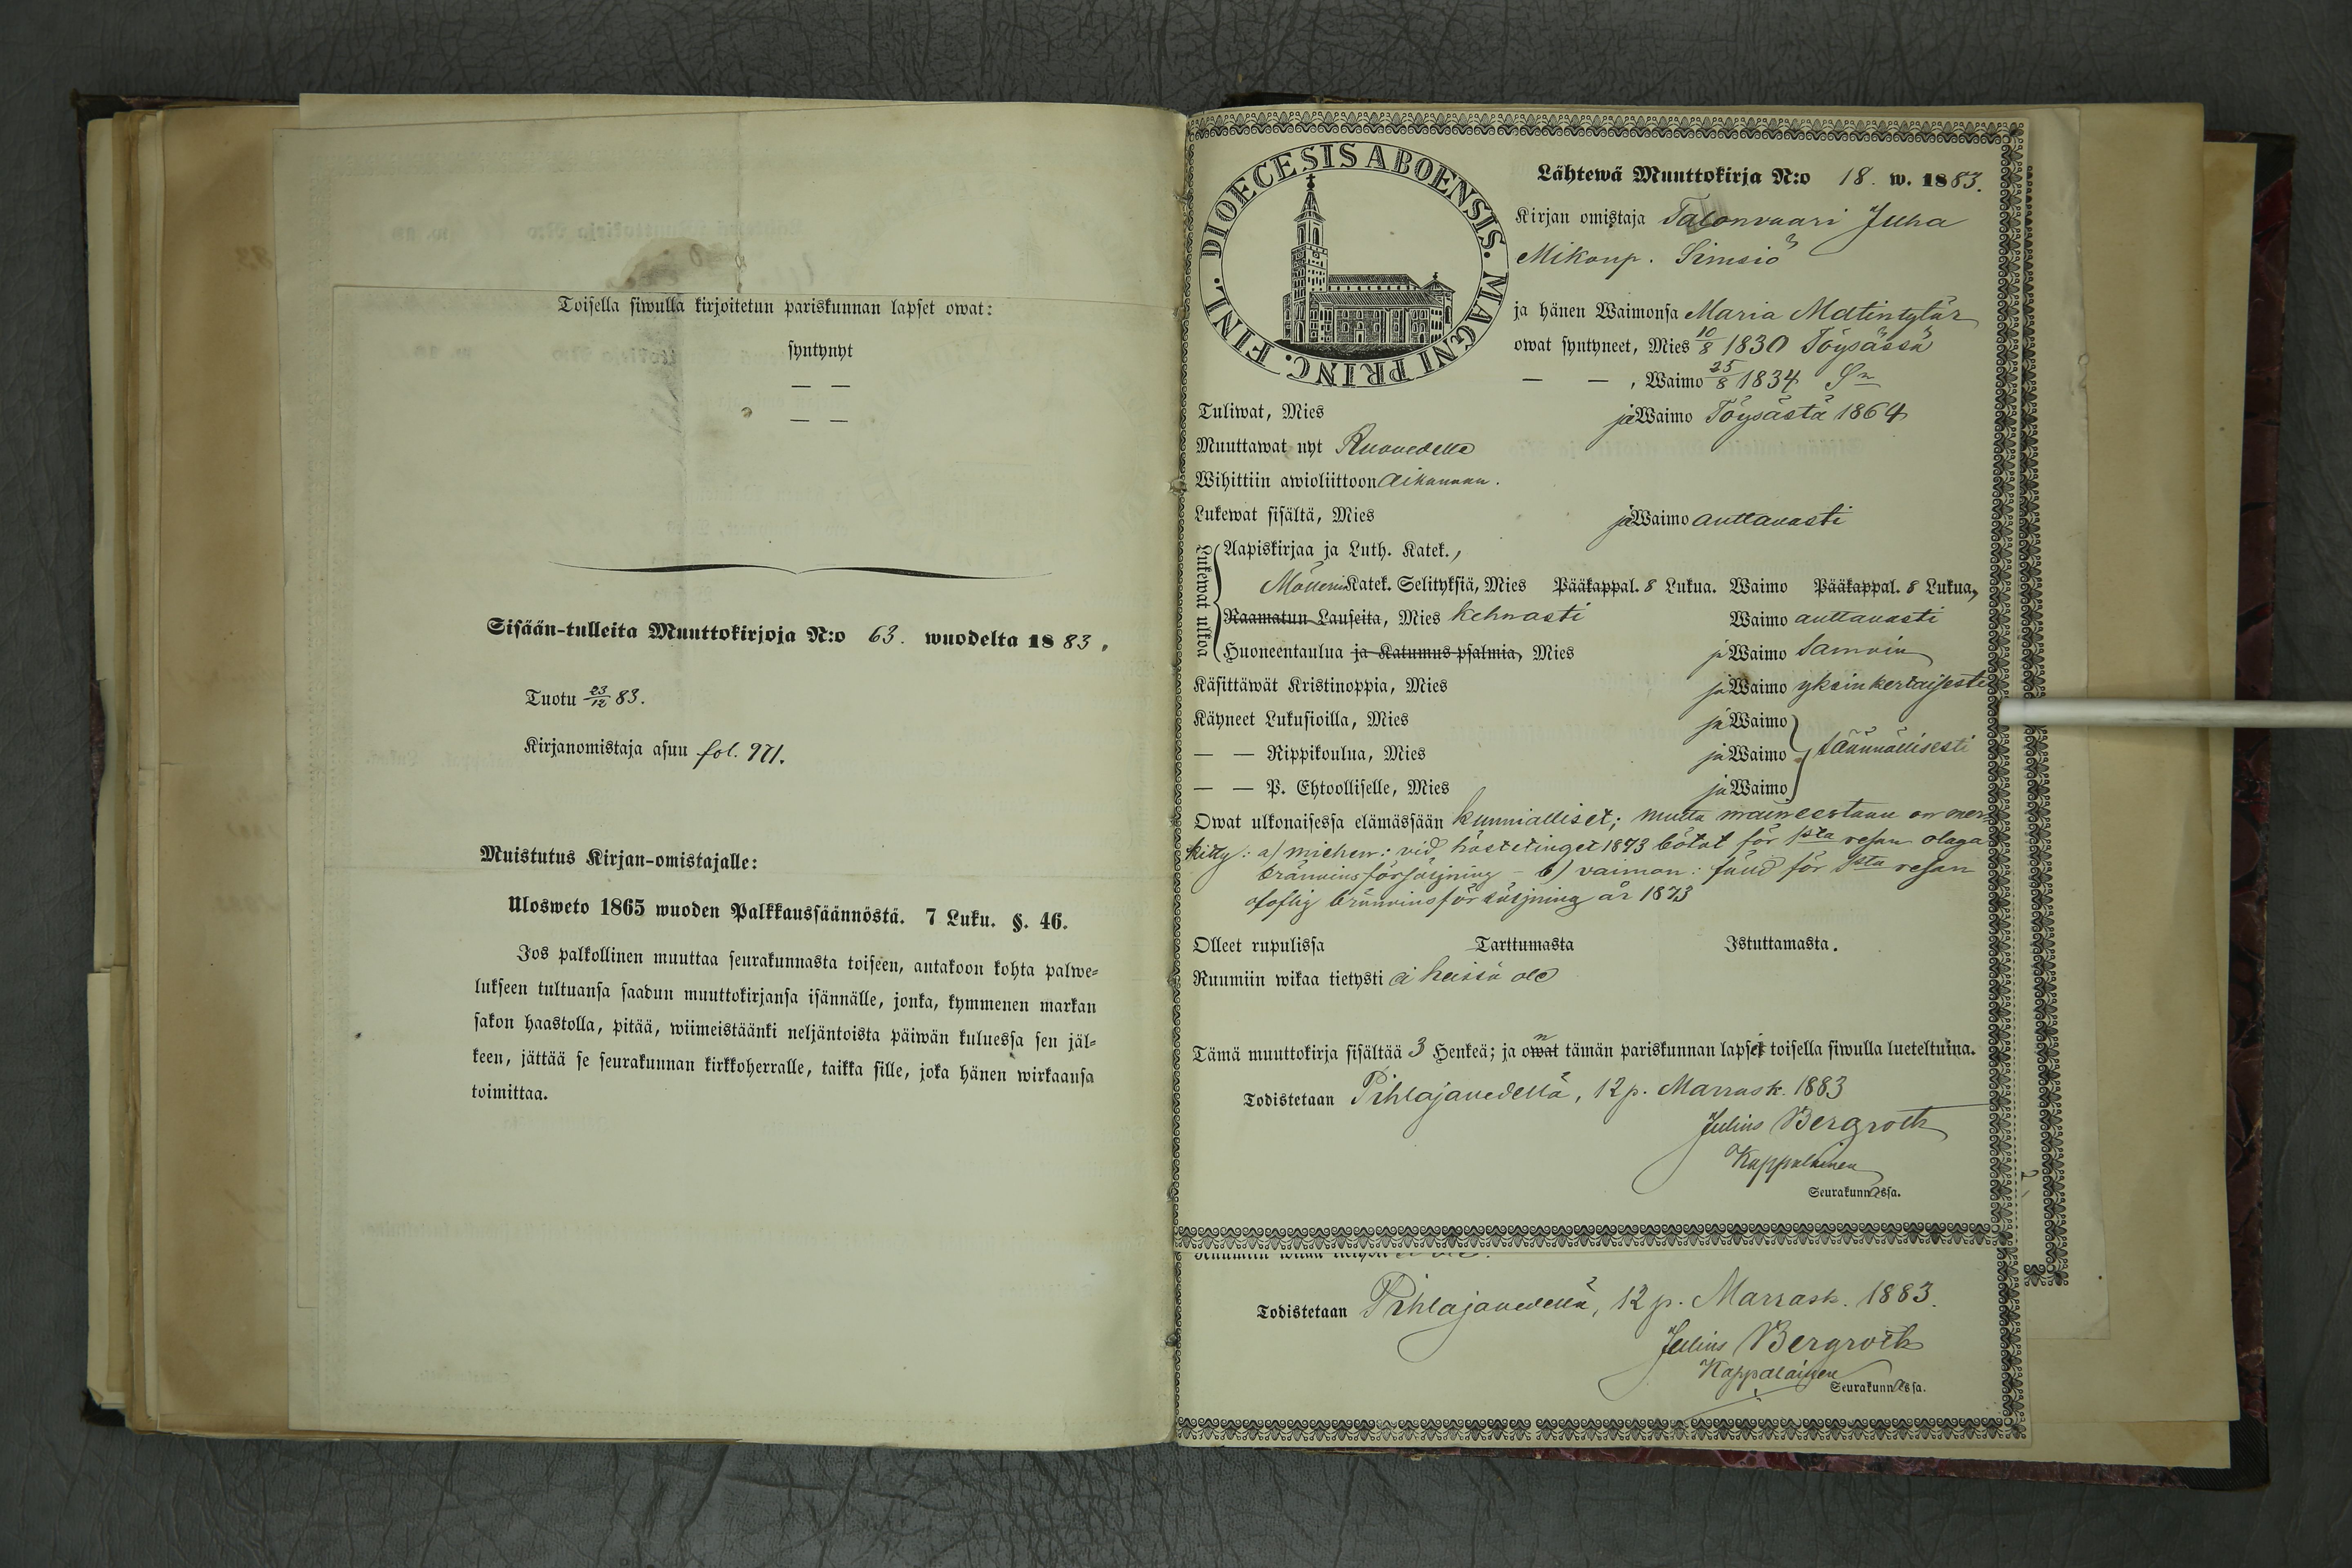 Toisella siwulla kirjoitetun pariskunnan lapset owat:
syntynyt
— —
— —
Sisään-tulleita Muuttokirjoja N:o 63. wuodelta 1883.
Tuotu 23/12 83.
Kirjanomistaja asuu fol. 971.
Muistutus Kirjan-omistajalle:
Ulosweto 1865 wuoden Palkkaussäännöstä. 7 Luku. §. 46.
Jos palkollinen muuttaa seurakunnasta toiseen, antakoon kohta palwe-
lukseen tultuansa saadun muuttokirjansa isännälle, jonka, kymmenen markan
sakon haastolla, pitää, wiimeistäänki neljäntoista päiwän kuluessa sen jäl-
keen, jättää se seurakunnan kirkkoherralle, taikka sille, joka hänen wirkaansa
toimittaa.
DIOECESIS ABOENSIS. MAGNI PRINC. FINL.
Lähtewä Muuttokirja N:o 18. w. 1883.
Kirjan omistaja Talonvaari Juha
Mikonp. Simsiö
ja hänen Waimonsa Maria Matintytär
owat syntyneet, Mies 10/8 1830 Töysässä
— — , Waimo 25/8 1834 Sn
Tuliwat, Mies ja Waimo Töysästä 1864
Muuttawat nyt Ruovedelle
Wihittiin awioliittoon aikanaan.
Lukewat sisältä, Mies ja Waimo auttavasti
Lukewat ulkoa
Aapiskirjaa ja Luth. Katek.,
Möllerin Katek. Selityksiä, Mies Pääkappal. 8 Lukua. Waimo Pääkappal. 8 Lukua,
Raamatun Lauseita, Mies kehnosti Waimo auttavasti
Huoneentaulua ja Katumus psalmia, Mies ja Waimo samoin
Käsittäwät Kristinoppia, Mies ja Waimo yksinkertaisesti
Käyneet Lukusioilla, Mies ja Waimo
— — Rippikoulua, Mies ja Waimo säännöllisesti
— — P. Ehtoolliselle, Mies ja Waimo
Owat ulkonaisessa elämässään kunnialliset; mutta maineestaan on mer-
kitty: a) miehen: vid hösttinget 1873 bötat för 1sta resan olaga
bränvinsförsäljning – b) vaimon: sand för 1sta resan
oloflig bränvinsförsäljning år 1873
Olleet rupulissa Tarttumasta Istuttamasta.
Ruumiin wikaa tietysti ei heissä ole
Tämä muuttokirja sisältää 3 Henkeä; ja owat n tämän pariskunnan lapset toisella siwulla lueteltuina.
Todistetaan Pihlajavedellä, 12 p. Marrask. 1883
Julius Bergroth
Kappalainen
Seurakunnassa.
Todistetaan Pihlajavedellä, 12 p. Marrask. 1883.
Julius Bergroth
Kappalainen
Seurakunnassa.